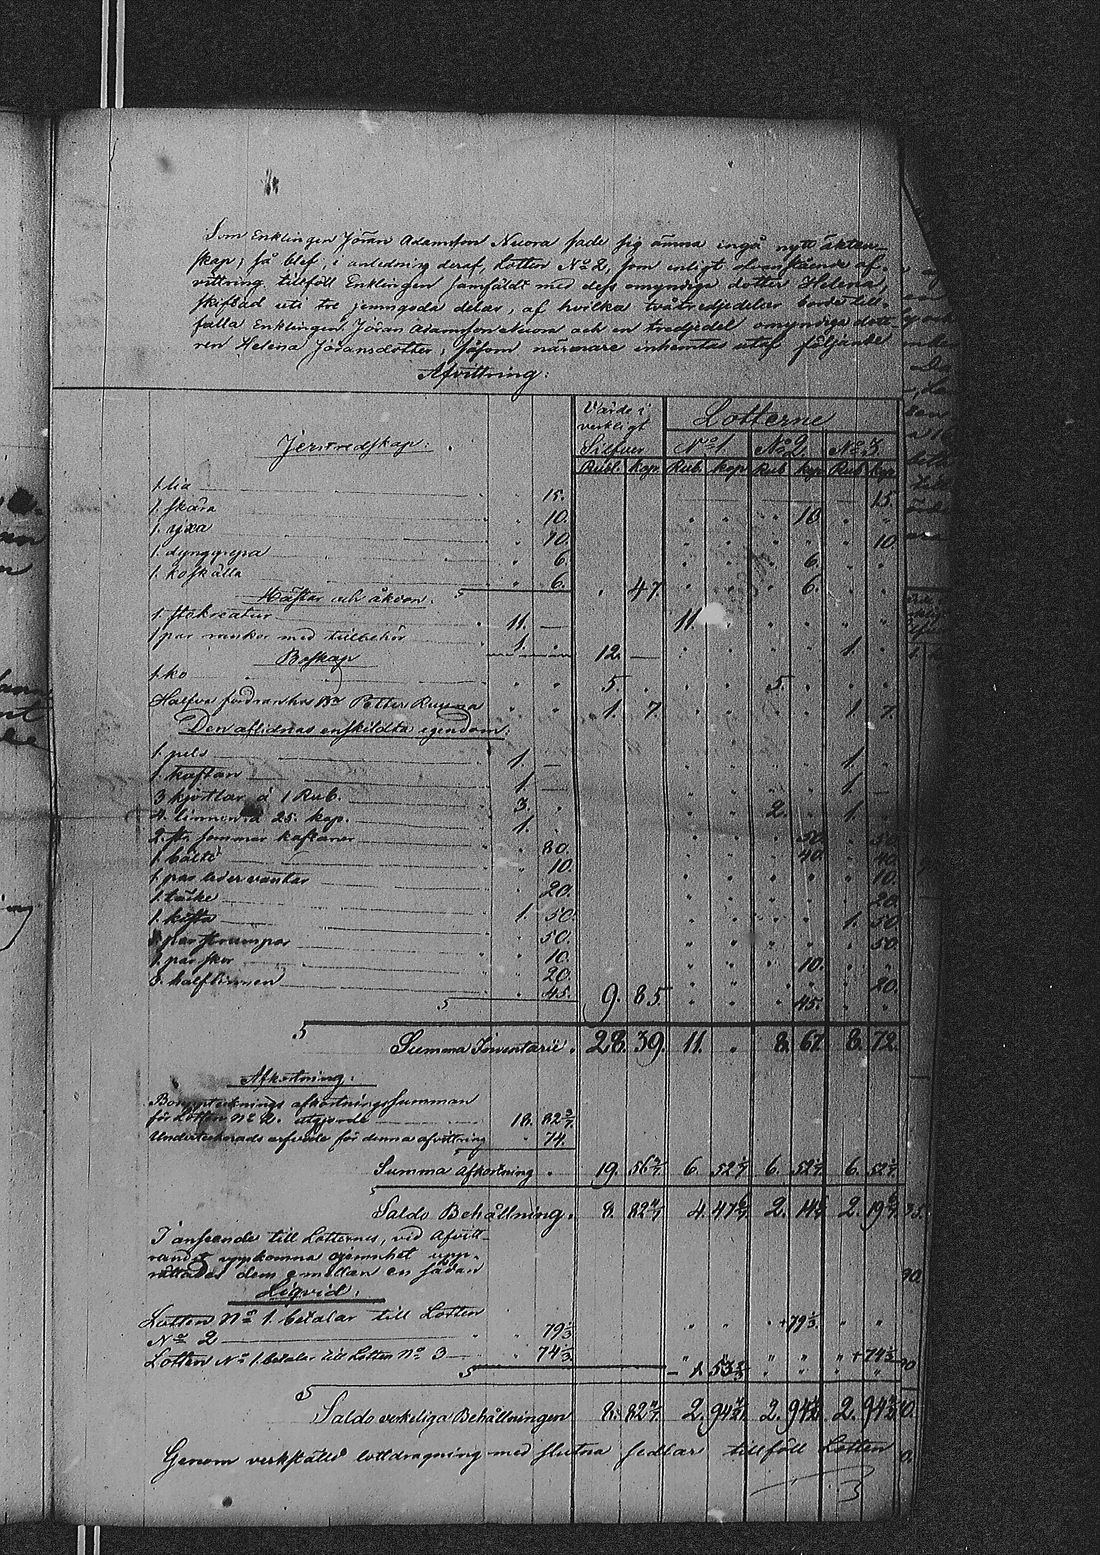 Som Enklingen Jöran Adamsson Neuora sade sig ämna ingå nytt äkten-
skap, så blef, i anledning deraf, Lotten No 2, som enligt ofvanstående af-
vittring tillföll Enklingen samfäldt med dess omyndiga dotter Helena,
skiftad uti tre jemngoda delar, af hvilka tvåtredjedelar borde till-
falla Enklingen Jöran Adamsson Neuora och en tredjedel omyndiga dott-
ren Helena Jöransdotter, såsom närmare inhemtas utaf följande
Afvittring:
Värde i verkligt Silfver Lotterne
Jernredskap: No 1. No 2. No 3.
Rubl. Kop. Rub. kop. Rub. kop. Rub. kop.
1. lia 15. 15.
1. skära 10. 10.
1. yxa 10. 10.
1. dynggrepa 6. 6.
1. koskälla 6. 47. 6.
Hästar och åkdon.
1. stokreatur 11. — 11.
1 par rankor med tillbehör 1. 12. — 1.
Boskap
1. ko 5. 5.
Halfva fodran hos Petter 1. 7. 1. 7.
Den aflidnas enskildta egendom:
1. pels 1. — 1.
1. kaftan 1. — 1. —
3 kjortlar à 1 Rub. 3. 2. 1.
4. linnen à 25. kop. 1. 50. 50.
2. st. sommar kaftaner 80. 40. 40.
1. bälte 10. 10.
1. par lädervantar 20. 20.
1. täcke 1. 50. 1. 50.
1. kista 50. 50.
1. par strumpor 10. 10.
1. par skor 20. 20.
3. halflinnen 45. 9. 85. 45.
Summa Inventarii. 28. 39. 11. 8. 67. 8. 72.
Afkortning:
Boupptecknings afkortningssumman
för Lotten No 2. utgjorde 18. 82 2/7.
Undertecknads arfvode för denna afvittning 74.
Summa Afkortning. 19. 56 2/7 6. 52 1/7 6. 52 1/7 6. 52 1/7
Saldo Behållning. 8. 82 4/7 4. 47 6/7 2. 14 6/7 2. 19 6/7
I anseende till Lotternes, vid Afvitt-
randet uppkomna ojemnhet upp-
rättades dem emellan en sådan
Liqvid.
Lotten No 1. betalar till Lotten
No 2 79 1/3 +79 1/3
Lotten No 1. betalar till Lotten No 3 74 1/3 - 1. 53 2/3 +74 1/3
Saldo verkeliga Behållningen 8. 82 4/7 2. 94 4/21 2. 94 4/21 2. 94 4/21
Genom verkställd lottdragning med slutna sedlar tillföll Lotten
3